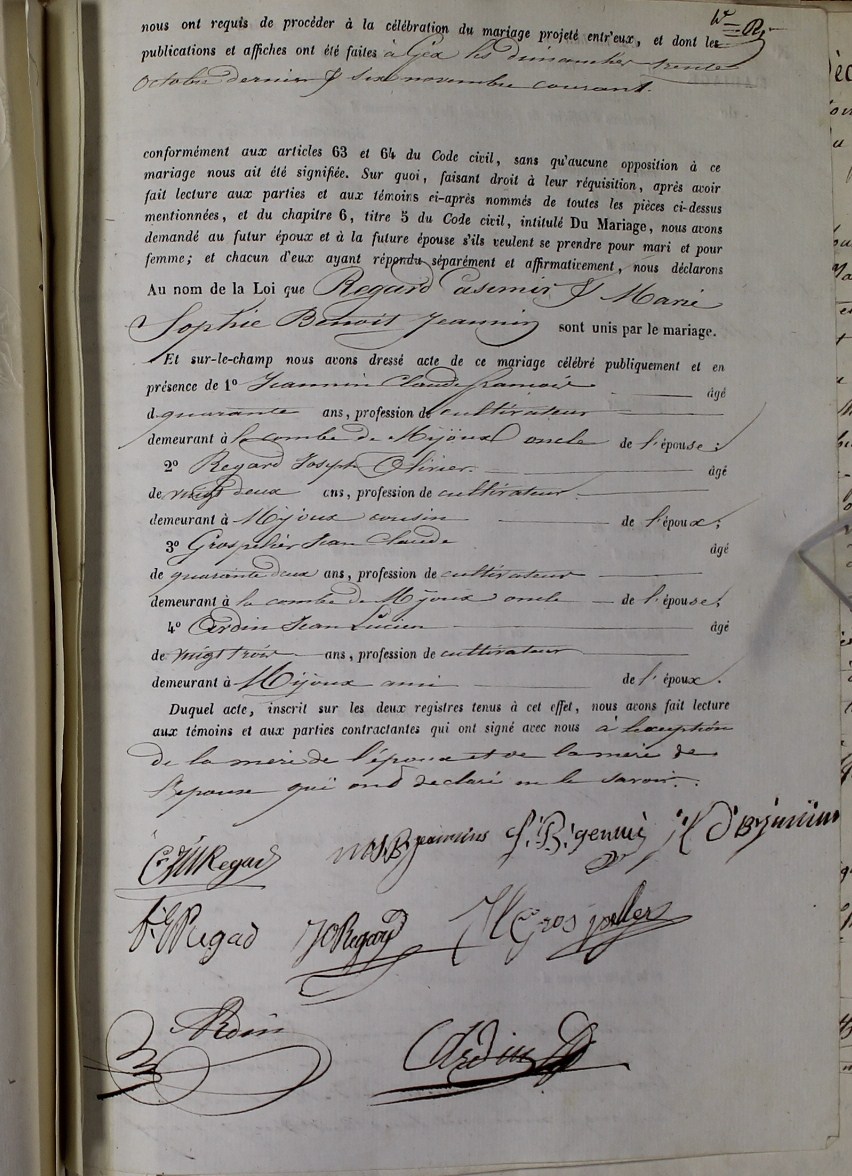 nous ont requis de procéder à la célébration du mariage projeté entr'eux, et dont les
publications et affiches ont été faites à Gex les dimanches trente
Octobre dernier & six novembre courant.
conformément aux articles 63 et 64 du Code civil, sans qu'aucune opposition à ce
mariage nous ait été signifiée. Sur quoi, faisant droit à leur réquisition, après avoir
fait lecture aux parties et aux témoins ci-après nommés de toutes les pièces ci-dessus
mentionnées, et du chapitre 6, titre 5 du Code civil, intitulé Du Mariage, nous avons
demandé au futur époux et à la future épouse s'ils veulent se prendre pour mari et pour
femme; et chacun d'eux ayant répondu séparément et affirmativement, nous déclarons
Au nom de la Loi que Regard Casemir & Marie
Sophie Benoit Jeannin sont unis par le mariage.
Et sur-le-champ nous avons dressé acte de ce mariage célébré publiquement et en
présence de 1º Jeannin Claude françois âgé
d quarante ans, profession de cultivateur
demeurant à la combe de Mijoux oncle de l'épouse;
2º Regard Joseph Olivier. âgé
de vingt deux ans, profession de cultivateur.
demeurant à Mijoux cousin de l'époux;
3º Grospelier Jean Claude âgé
de quarante deux ans, profession de cultivateur
demeurant à la combe de Mijoux oncle de l'épouse;
4º Ardin Jean Lucien âgé
de vingt trois ans, profession de cultivateur
demeurant à Mijoux ami de l'époux.
Duquel acte, inscrit sur les deux registres tenus à cet effet, nous avons fait lecture
aux témoins et aux parties contractantes qui ont signé avec nous à l'exception
de la mère de l'époux et de la mère de
l'épouse qui ont déclaré ne le savoir.
Regad
Regad JO Regard Grospellier
Ardin